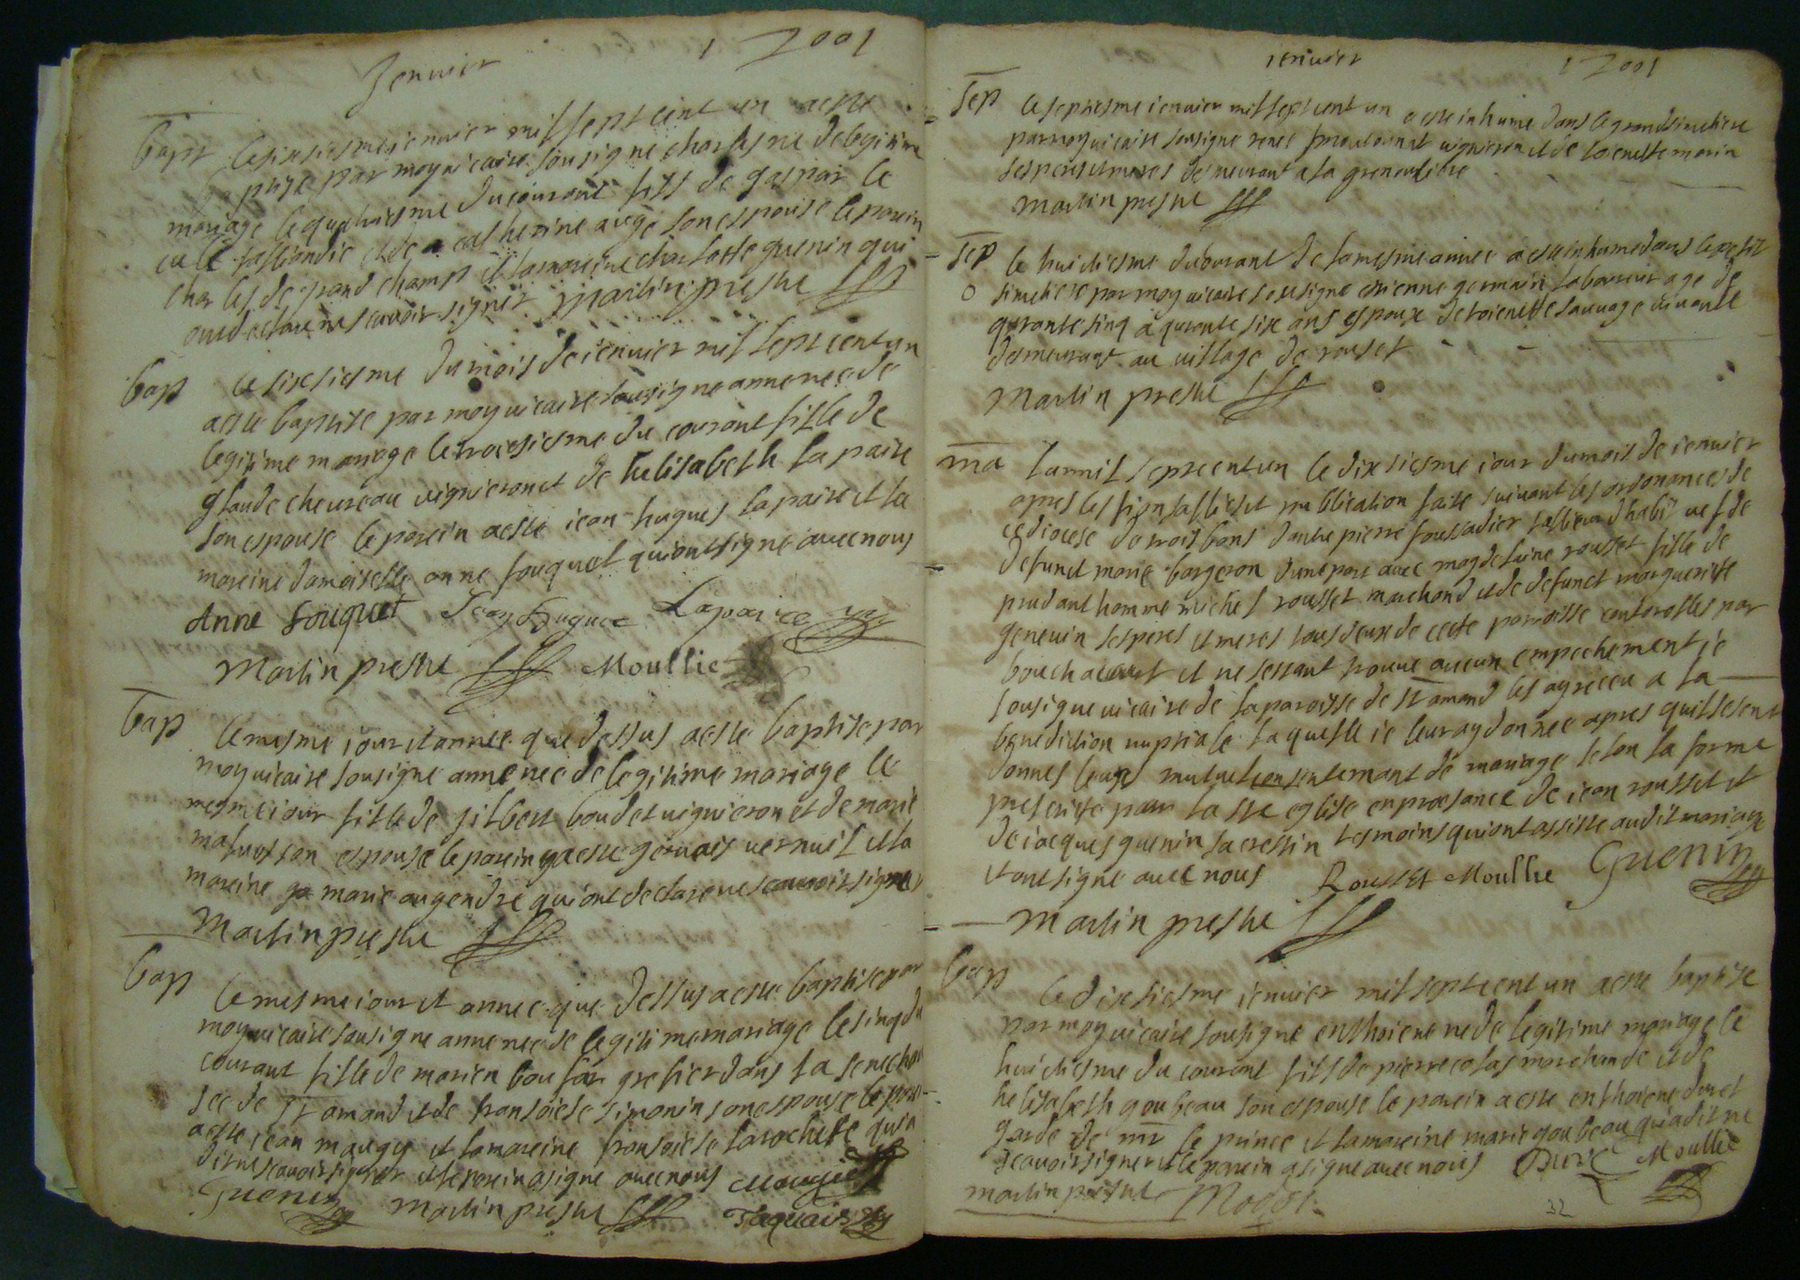 Jenvier 1 7001
bapt le sixiesme jenvier mil sept cent un a esté
baptize par moy vicaire sousigne charles ne de legitime
mariage le quatriesme du courant fils de gaspar le
et de catherine auge son espouse le parein
charles de grand champ et la mareine charlotte guenin qui
ont declare ne scavoir signer Martin prestre
bap le sixiesme du mois de ienvier mil sept cent un
a este baptise par moy vicaire sousigne anne nee de
legitime mariage le troisiesme du courant fille de
glaude cheureau vigneron et de helisabeth lapaire
son espouse le parein a este iean hugues lapaire et la
mareine damoiselle anne fouquet qui ont signe avec nous
Anne fouquet Jean hugues Lapaire
Martin prestre Moullie
bap le mesme iour et annee que dessus a este baptise par
moy vicaire sousigne anne nee de legitime mariage le
mesme iour fille de gilbert boudet vigneron et de marie
son espouse le parein a este gervais vernuil et la
mareine marie augendre qui ont declare ne scavoir signer
Martin prestre
bap le mesme iour et annee que dessus a este baptise par
moy vicaire sousigne anne nee de legitime mariage le sinq du
courant fille de marien grefier dans la senechau
see de st amand et de fransoise simonin son espouse le parein
a este iean maugy et la mareine fransoise larochette qui a
dit ne scavoir signer et le parein a signe avec nous
Guenin Martin prestre
ienvier 1 7001
sep le septiesme ienvier mil sept cent un a este inhume dans le grand simetiere
par moy vicaire sousigne rene vigneron et de toienette morin
ses pere et meres demeurant a la
Martin prestre
sep le huictiesme du courant de la mesme annee a este inhume dans le petit
simetiere par moy vicaire sousigne estienne germain laboureur age de
quarante sinq a quarante six ans espoux de toienette sauvage vivante
demeurant au village de rousset
Martin prestre
ma l an mil sept cent un le dixiesme iour du mois de ienvier
apres les fiansallies et publication faite suivant les ordonances de
ce diocese de trois bans dantre pierre tallieur dhabi vef de
defunct marie bargeron dune part avec magdelaine rousset fille de
prudant homme michel rousset marchand et de defunct marguerite
genevin ses peres et meres tous deux de cette parroisse controlles par
bouchacourt et ne sestant trouve aucun empechement ie
sousigne vicaire de la paroisse de st amand les ay receu a la
benediction nuptiale laquelle ie leur ay donnee apres quils se sont
donnes leurs mutuel consintemant de mariage selon la forme
prescrite par la ste eglise en presance de iean rousset et
de iacques guenin tesmoins qui ont assiste au dit mariage
et ont signe avec nous Rousset Moullie Guenin
Martin prestre
bap le dixiesme ienvier mil sept cent un a este baptise
par moy vicaire sousigne enthoiene ne de legitime mariage le
huictiesme du courant fils de pierre colas marchande et de
helisabeth goubeau son espouse le parein a este enthoiene duret
garde de mr le prince et la mareine marie goubeau qui a dit ne
scavoir signer et le parein a signe avec nous Moullie
Martin prestre
32